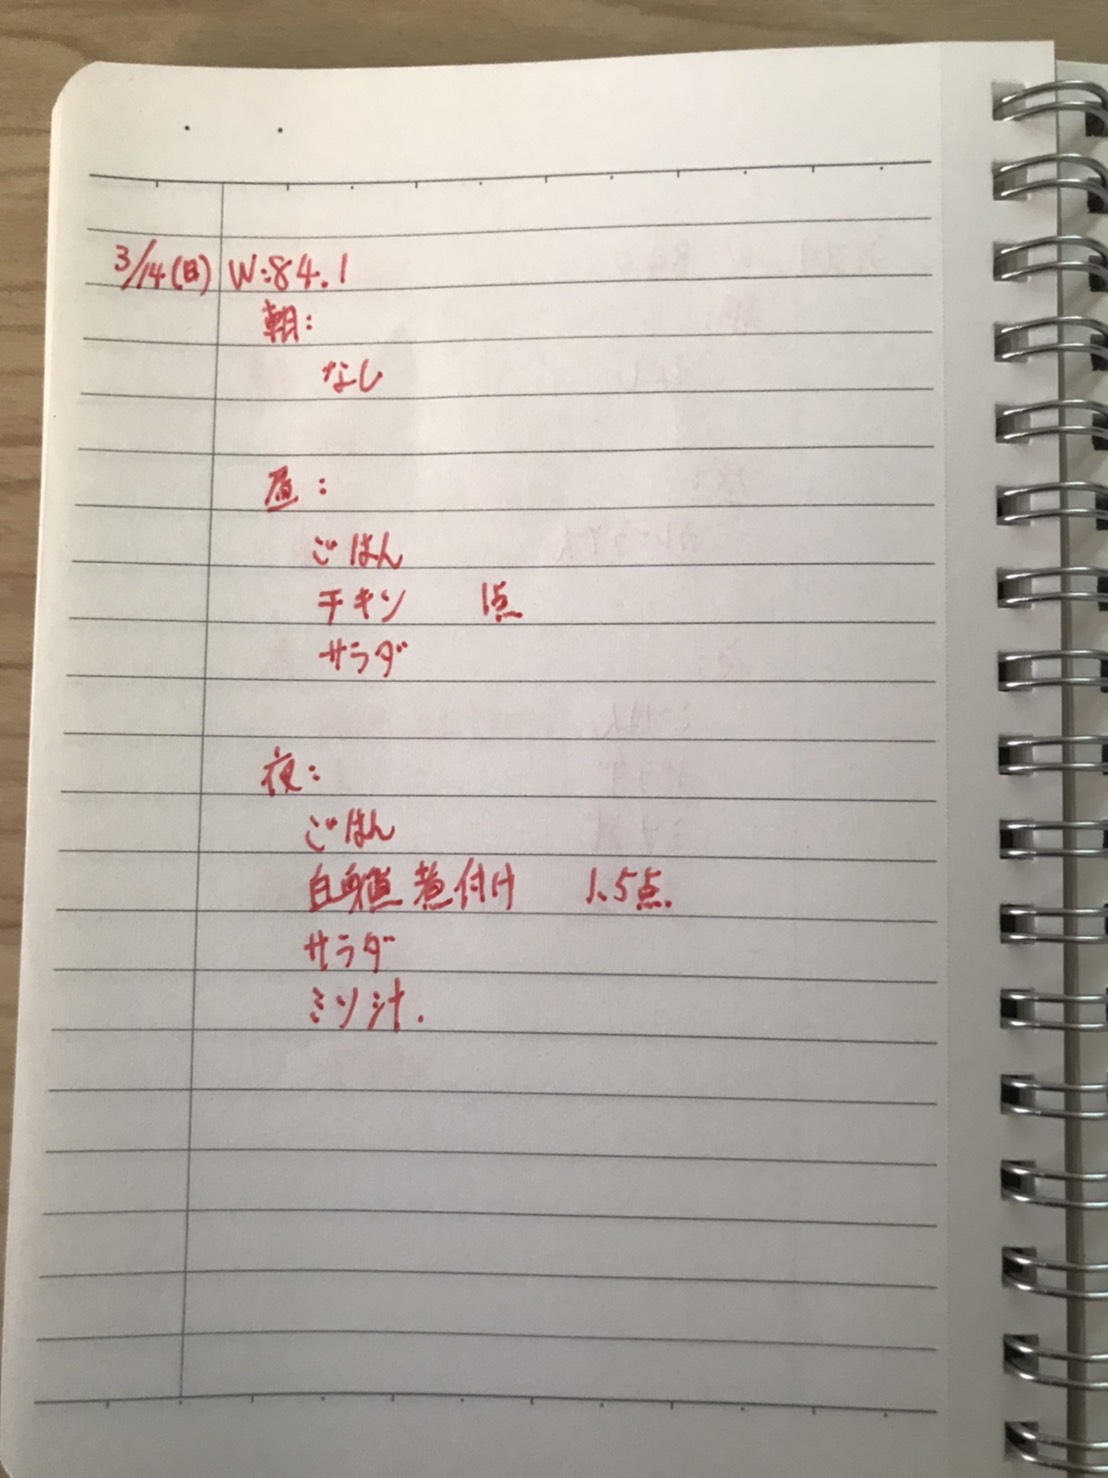 3/14(日) W:84.1
朝:
なし
昼:
ごはん
チキン 1点
サラダ
夜:
ごはん
白身魚煮付け 1.5点.
サラダ
ミソ汁.